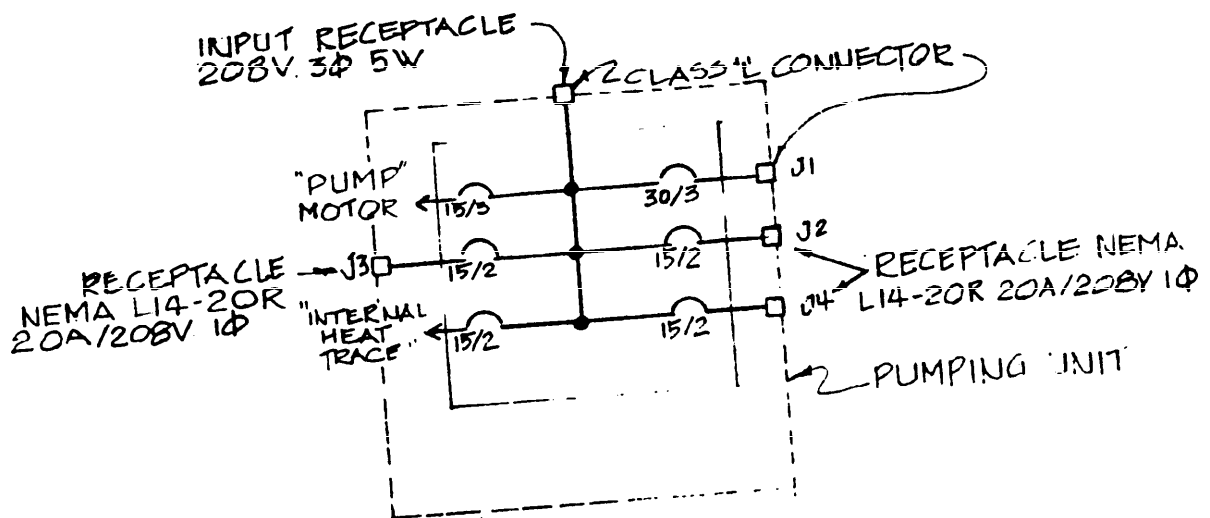 INPUT RECEPTACLE
208V. 3Φ 5W
CLASS "L" CONNECTOR
"PUMP"
MOTOR
15/3
30/3
J1
RECEPTACLE
NEMA L14-20R
20A/208V 1Φ
J3
15/2
15/2
J2
RECEPTACLE NEMA
L14-20R 20A/208V 1Φ
"INTERNAL
HEAT
TRACE"
15/2
15/2
J4
PUMPING UNIT